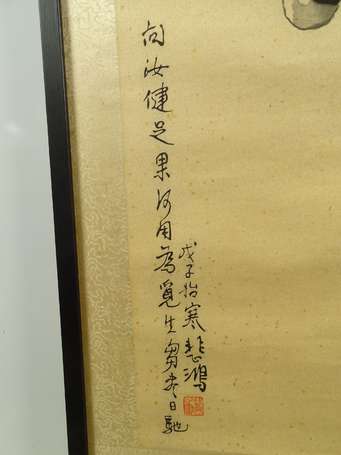 问汝健足果何用为觅生刍尽日驰
戊子始寒悲鸿